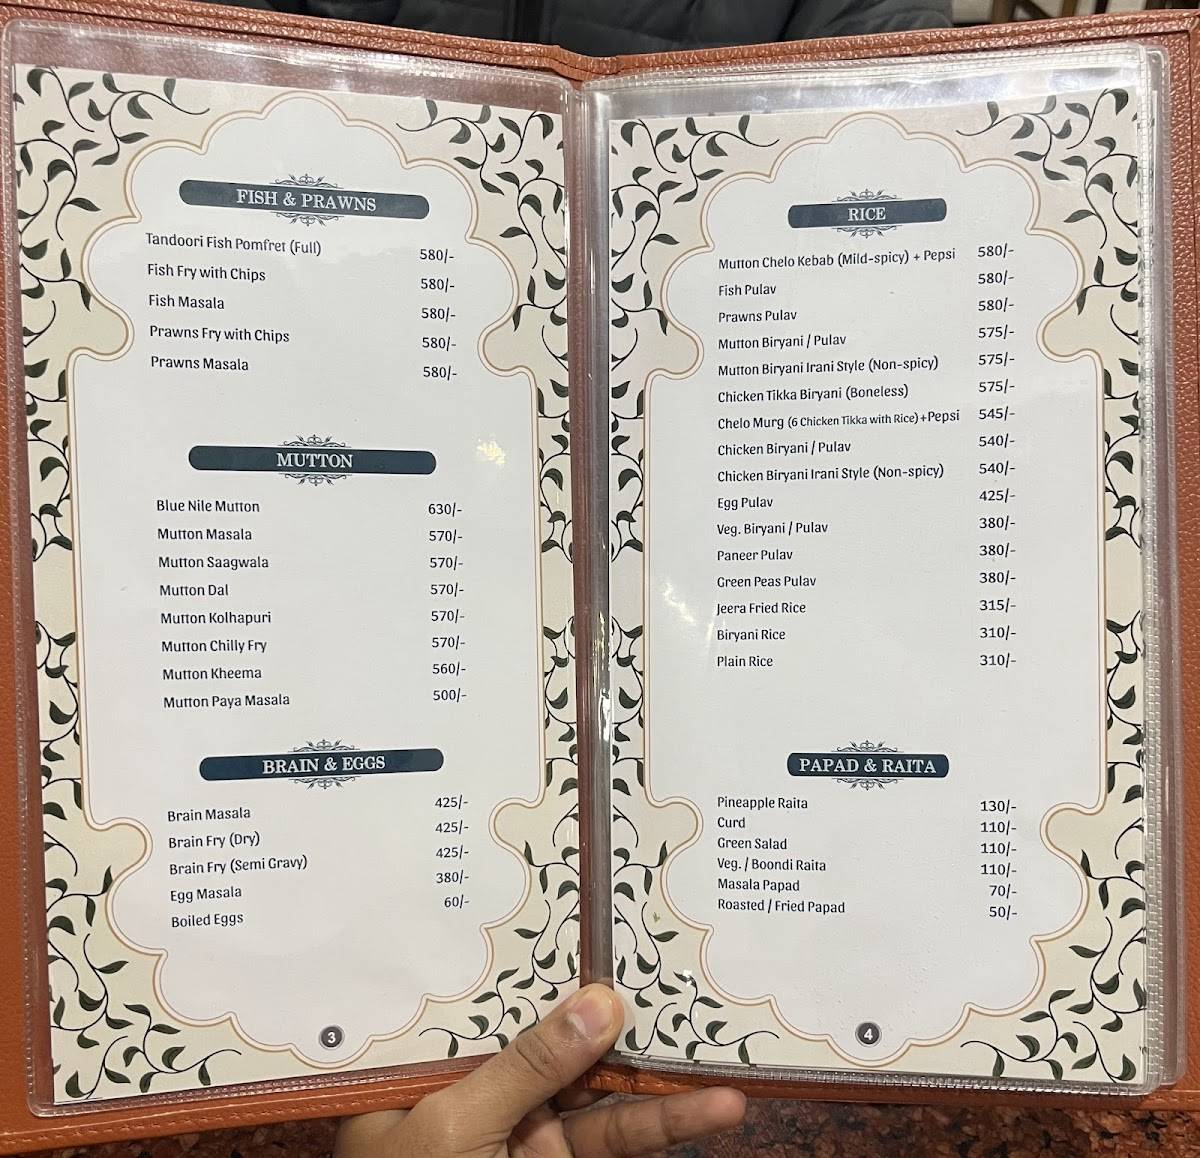 FISH & PRAWNS
Tandoori Fish Pomfret (Full) 580/-
Fish Fry with Chips 580/-
Fish Masala 580/-
Prawns Fry with Chips 580/-
Prawns Masala 580/-
MUTTON
Blue Nile Mutton 630/-
Mutton Masala 570/-
Mutton Saagwala 570/-
Mutton Dal 570/-
Mutton Kolhapuri 570/-
Mutton Chilly Fry 570/-
Mutton Kheema 560/-
Mutton Paya Masala 500/-
BRAIN & EGGS
Brain Masala 425/-
Brain Fry (Dry) 425/-
Brain Fry (Semi Gravy) 425/-
Egg Masala 380/-
Boiled Eggs 60/-
3
RICE
Mutton Chelo Kebab (Mild-spicy) + Pepsi 580/-
Fish Pulav 580/-
Prawns Pulav 580/-
Mutton Biryani / Pulav 575/-
Mutton Biryani Irani Style (Non-spicy) 575/-
Chicken Tikka Biryani (Boneless) 575/-
Chelo Murg (6 Chicken Tikka with Rice) +Pepsi 545/-
Chicken Biryani / Pulav 540/-
Chicken Biryani Irani Style (Non-spicy) 540/-
Egg Pulav 425/-
Veg. Biryani / Pulav 380/-
Paneer Pulav 380/-
Green Peas Pulav 380/-
Jeera Fried Rice 315/-
Biryani Rice 310/-
Plain Rice 310/-
PAPAD & RAITA
Pineapple Raita 130/-
Curd 110/-
Green Salad 110/-
Veg. / Boondi Raita 110/-
Masala Papad 70/-
Roasted / Fried Papad 50/-
4